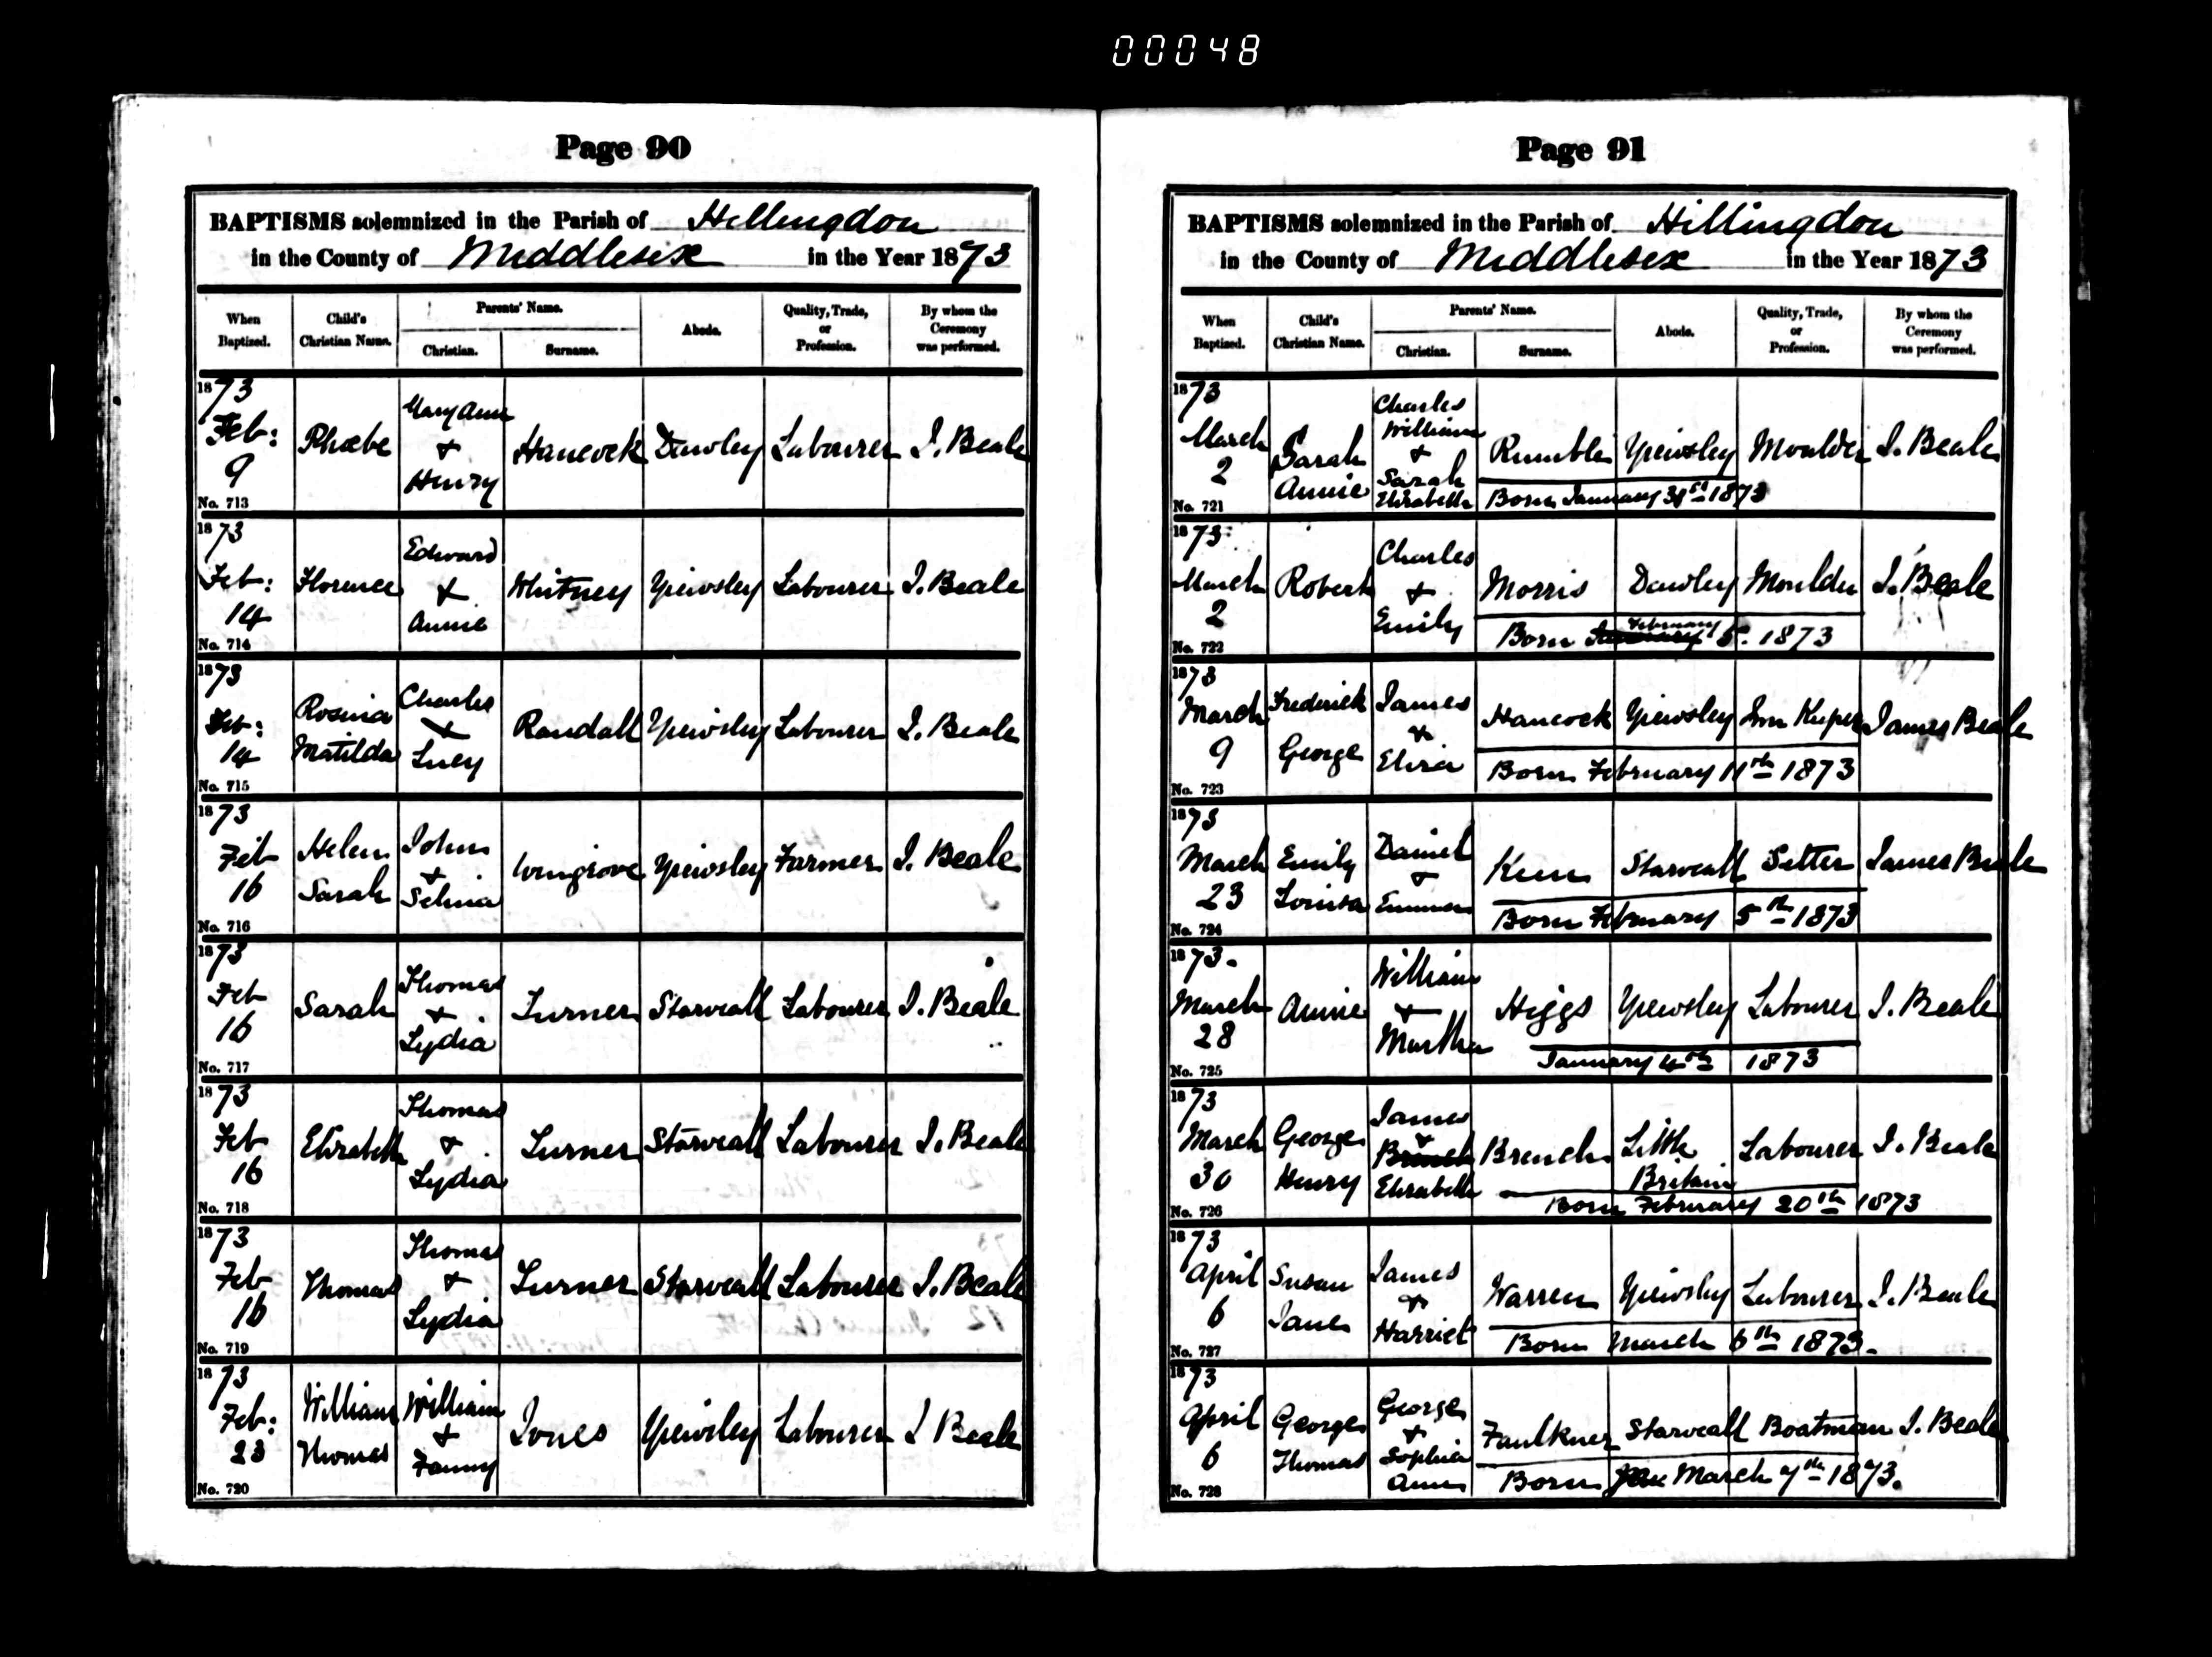 00048
Page 90
BAPTISMS solemnized in the Parish of Hillingdon
in the County of Middlesex in the Year 1873
When Baptized. Child's Christian Name. Parents' Name. Christian. Surname. Abode. Quality, Trade, or Profession. By whom the Ceremony was performed.
1873 Feb: 9 Phœbe Mary Ann & Henry Hancock Dawley Labourer J. Beale
No. 713
1873 Feb: 14 Florence Edward & Annie Whitney Yiewsley Labourer J. Beale
No. 714
1873 Feb: 14 Rosina Matilda Charles & Lucy Randall Yiewsley Labourer J. Beale
No. 715
1873 Feb 16 Helen Sarah John & Selina Wingrove Yiewsley Farmer J. Beale
No. 716
1873 Feb 16 Sarah Thomas & Lydia Turner Starveall Labourer J. Beale
No. 717
1873 Feb 16 Elizabeth Thomas & Lydia Turner Starveall Labourer J. Beale
No. 718
1873 Feb 16 Thomas Thomas & Lydia Turner Starveall Labourer J. Beale
No. 719
1873 Feb: 23 William Thomas William & Fanny Jones Yiewsley Labourer J Beale
No. 720
Page 91
BAPTISMS solemnized in the Parish of Hillingdon
in the County of Middlesex in the Year 1873
When Baptized. Child's Christian Name. Parents' Name. Christian. Surname. Abode. Quality, Trade, or Profession. By whom the Ceremony was performed.
1873 March 2 Sarah Annie Charles William & Sarah Elizabeth Rumble Yiewsley Moulder J. Beale
No. 721 Born January 31st 1873
1873 March 2 Robert Charles & Emily Morris Dawley Moulder J. Beale
No. 722 Born February 5. 1873
1873 March 9 Frederick George James & Eliza Hancock Yiewsley Inn Keeper James Beale
No. 723 Born February 11th 1873
1873 March 23 Emily Louisa Daniel & Emma Keen Starveall Setter James Beale
No. 724 Born February 5th 1873
1873. March 28 Annie William & Martha Higgs Yiewsley Labourer J. Beale
No. 725 January 4th 1873
1873 March 30 George Henry James & Elizabeth Brench Little Britain Labourer J. Beale
No. 726 Born February 20th 1873
1873 April 6 Susan Jane James & Harriet Warren Yiewsley Labourer J. Beale
No. 727 Born March 6th 1873.
1873 April 6 George Thomas George & Sophia Ann Faulkner Starveall Boatman J. Beale
No. 728 Born March 7th 1873.